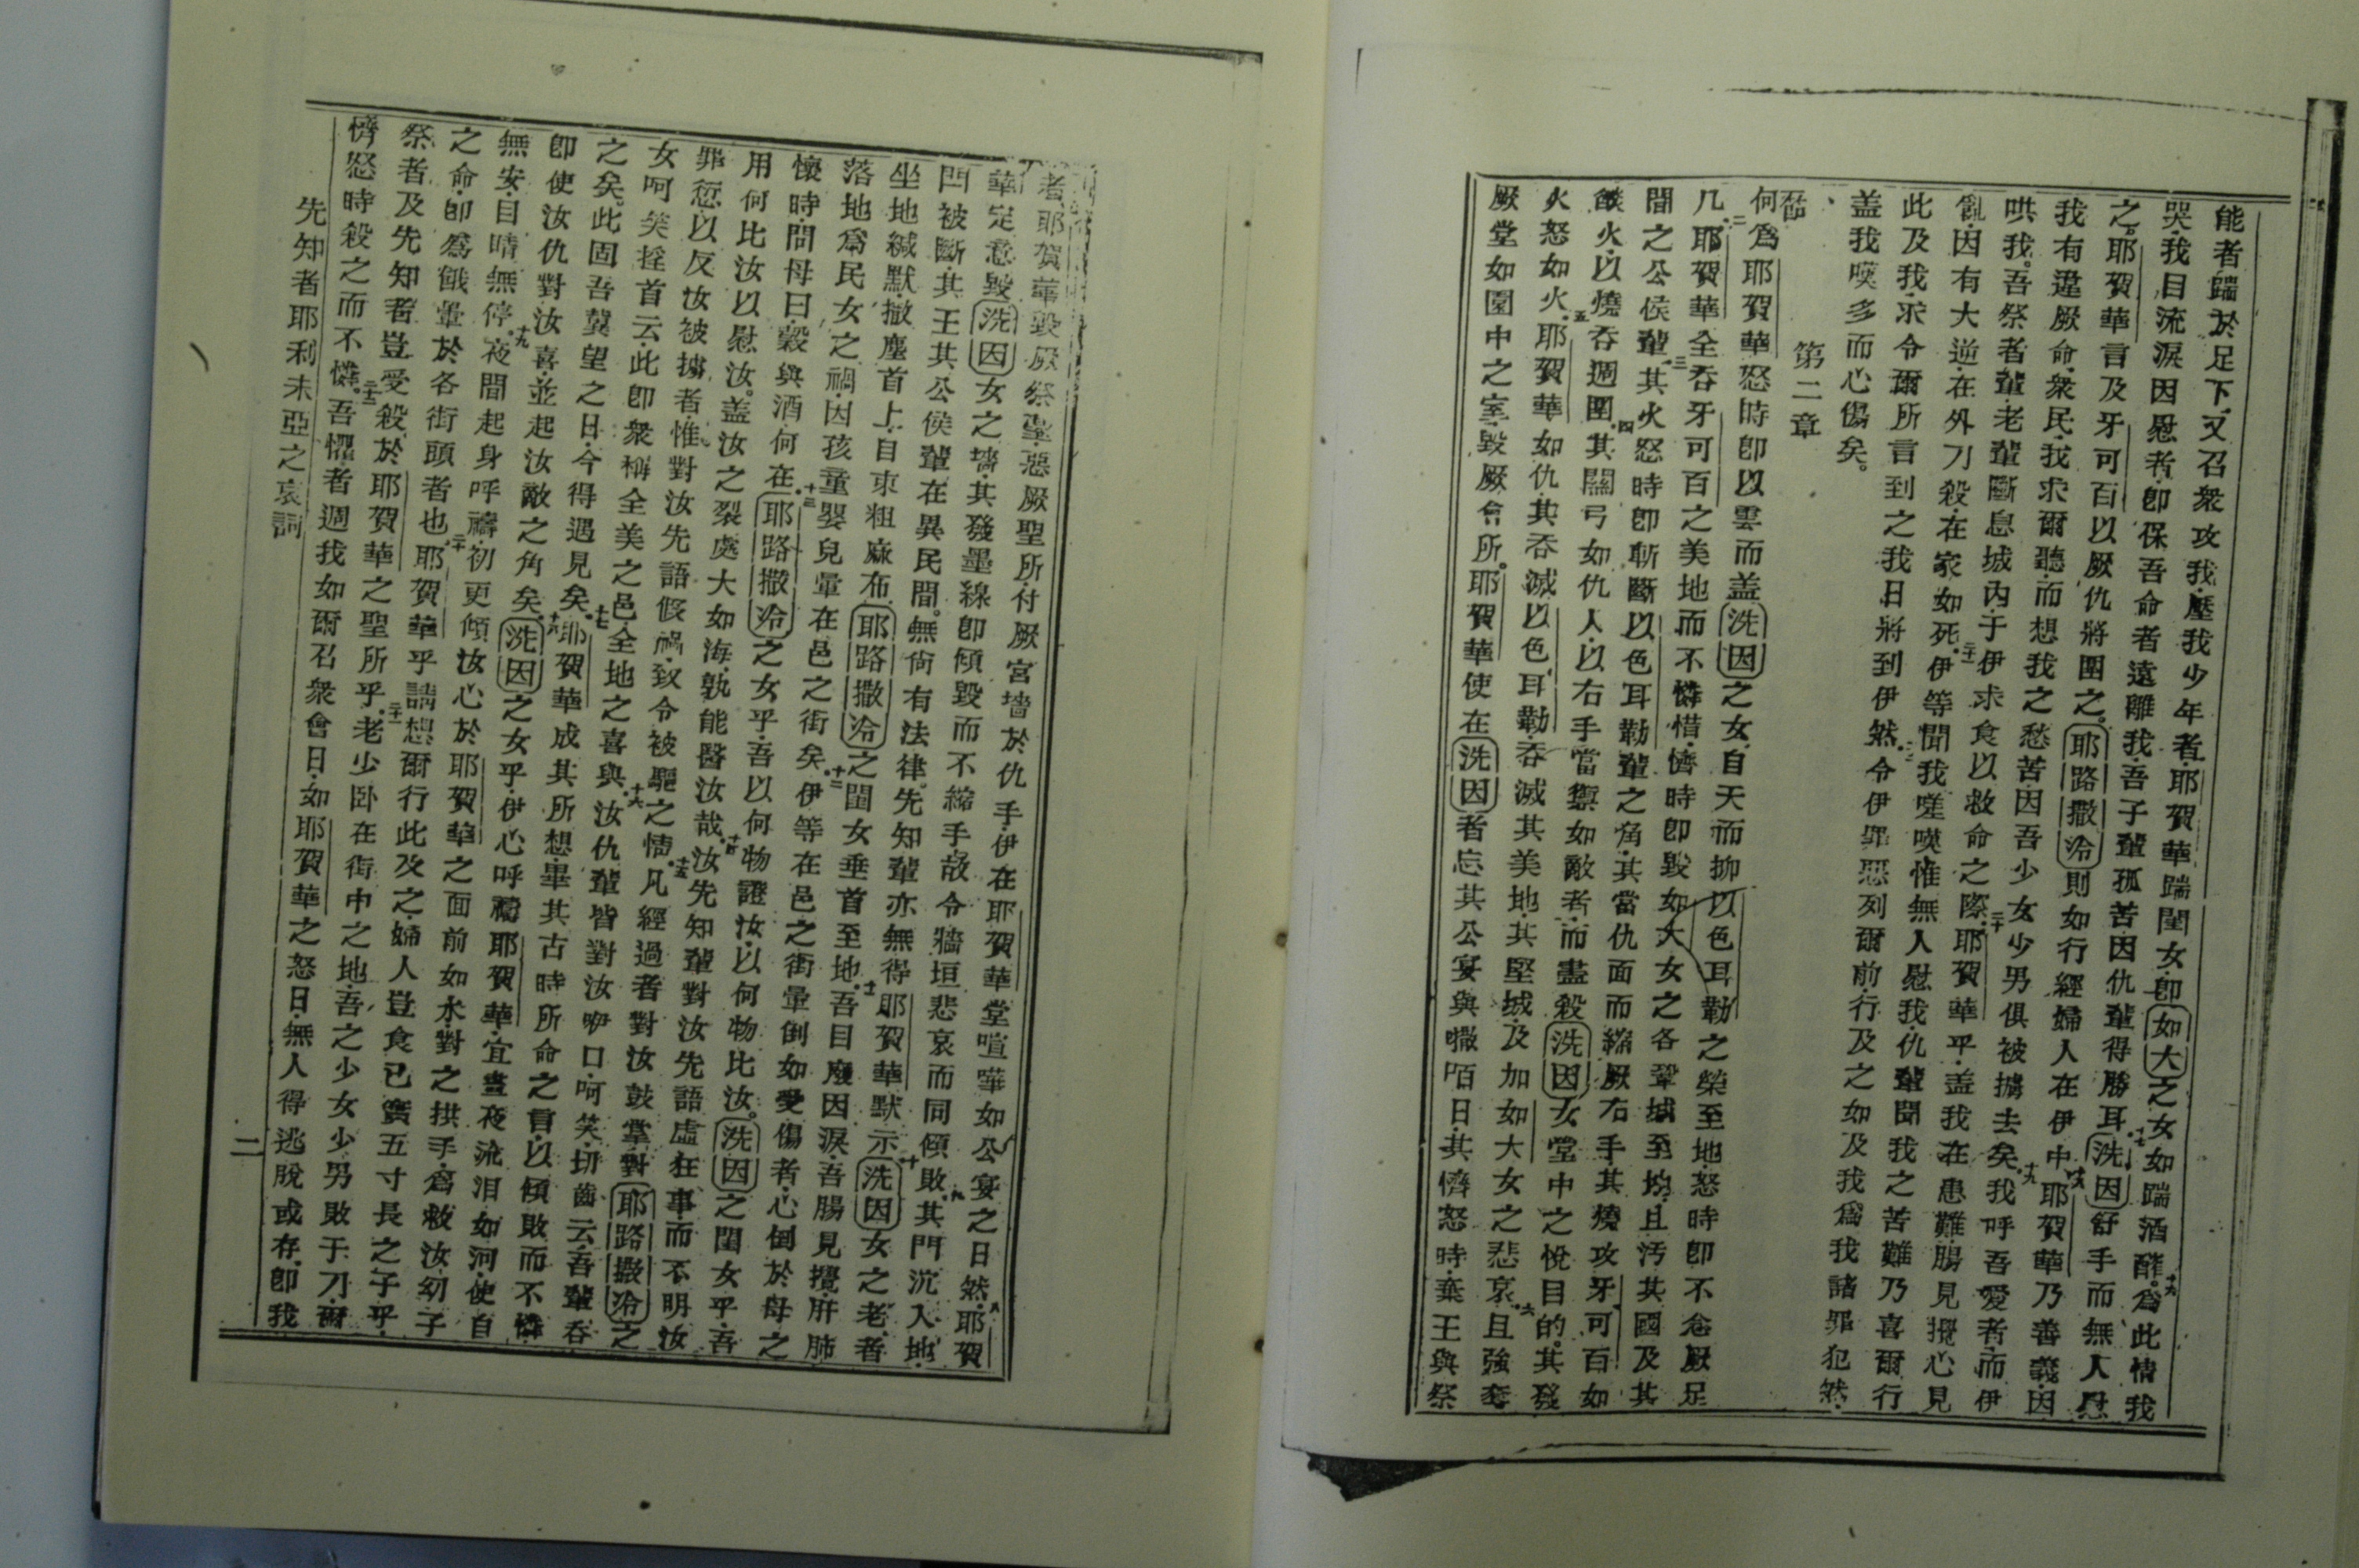 能者踹於足下又召衆攻我壓我少年者耶賀華踹閨女即如大之女如踹酒醡十六爲此情我
哭我目流淚因慰者即保吾命者遠離我吾子輩孤苦因仇輩得勝耳十七洗因舒手而無人慰
之耶賀華言及牙可百以厥仇將圍之耶路撒冷則如行經婦人在伊中十八耶賀華乃善義因
我有違厥命衆民我求爾聽而想我之愁苦因吾少女少男俱被擄去矣十九我呼吾愛者而伊
哄我吾祭者輩老輩斷息城內于伊求食以救命之際二十耶賀華乎盖我在患難腸見攪心見
亂因有大逆在外刀殺在家如死二十一伊等聞我嗟嘆惟無人慰我仇輩聞我之苦難乃喜爾行
此及我求令爾所言到之我日將到伊然二十二令伊罪惡列爾前行及之如及我爲我諸罪犯然
盖我嘆多而心傷矣
第二章
何爲耶賀華怒時即以雲而盖洗因之女自天而抛以色耳勒之榮至地怒時即不念厥足
几二耶賀華全吞牙可百之美地而不憐惜憤時即毀如大女之各鞏城至均且汚其國及其
間之公侯輩三其火怒時即斬斷以色耳勒輩之角其當仇面而縮厥右手其燒攻牙可百如
燄火以燒吞週圍四其關弓如仇人以右手當禦如敵者而盡殺洗因女堂中之悅目的其發
火怒如火五耶賀華如仇其吞滅以色耳勒吞滅其美地其堅城及加如大女之悲哀六且強奪
厥堂如園中之室毀厥會所耶賀華使在洗因者忘其公宴與𭊌咟日其憤怒時棄王與祭
者耶賀華毀厥祭臺惡厥聖所付厥宮墻於仇手伊在耶賀華堂喧嘩如公宴之日然八耶賀
華定意毀洗因女之墻其發墨線即傾毀而不縮手故令牆垣悲哀而同傾敗九其門沉入地
閂被斷其王其公侯輩在異民間無尙有法律先知輩亦無得耶賀華默示十洗因女之老者
坐地緘默撒塵首上自束粗麻布耶路撒冷之閨女垂首至地十一吾目廢因淚吾腸見攪肝肺
落地爲民女之禍因孩童嬰兒暈在邑之街矣十二伊等在邑之街暈倒如受傷者心倒於母之
懷時問母曰穀與酒何在十三耶路撒冷之女乎吾以何物證汝以何物比汝洗因之閨女乎吾
用何比汝以慰汝盖汝之裂處大如海孰能醫汝哉十四汝先知輩對汝先語虛狂事而不明汝
罪愆以反汝被擄者惟對汝先語假禍致令被驅之情十五凡經過者對汝鼓掌對耶路撒冷之
女呵笑搖首云此即衆稱全美之邑全地之喜與十六汝仇輩皆對汝咿口呵笑切齒云吾輩吞
之矣此固吾冀望之日今得遇見矣十七耶賀華成其所想畢其古時所命之言以傾敗而不憐
即使汝仇對汝喜並起汝敵之角矣十八洗因之女乎伊心呼禱耶賀華宜晝夜流泪如河使自
無安目睛無停十九夜間起身呼禱初更傾汝心於耶賀華之面前如水對之拱手爲救汝幼子
之命即爲餓暈於各街頭者也二十耶賀華乎請想爾行此及之婦人豈食已實五寸長之子乎
祭者及先知者豈受殺於耶賀華之聖所乎二十一老少卧在街中之地吾之少女少男敗于刀爾
憤怒時殺之而不憐二十二吾懼者週我如爾召衆會日如耶賀華之怒日無人得逃脫或存即我
先知者耶利未亞之哀詞
二